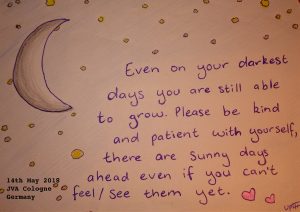 Even on your darkest
days you are still able
to grow. Please be kind
and patient with yourself,
there are sunny days
ahead even if you can't
feel/see them yet.
14th May 2018
JVA Cologne
Germany